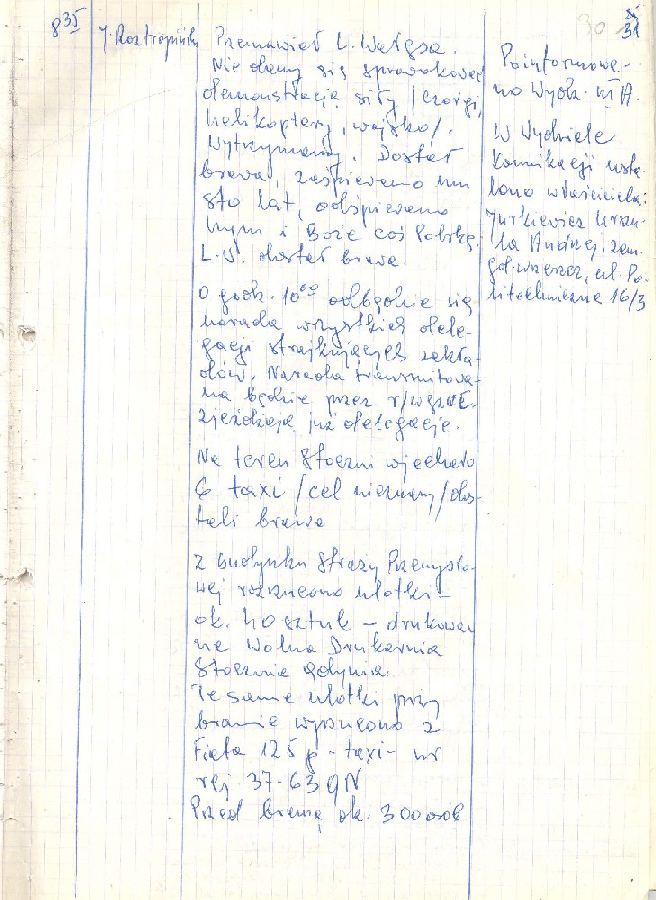 30 31
8³⁵
J. Roztropiński
Przemawiał L. Wałęsa.
Nie damy się sprowokować
demonstracją siły /czołgi,
helikoptery, wojsko/.
Wytrzymamy. Dostał
brawa, zaśpiewano mu
sto lat, odśpiewano
hymn i Boże coś Polskę.
L.W. dostał brawa
O godz. 10⁰⁰ odbędzie się
narada wszystkich dele-
gacji strajkujących zakła-
dów. Narada transmitowa-
na będzie przez r/węzeł.
Zjeżdżają już delegacje.
Na teren Stoczni wjechało
6 taxi /cel nieznany/dos-
tali brawa
Z budynku Straży Przemysło-
wej rozrzucono ulotki -
ok. 40 sztuk - drukowa
ne Wolna Drukarnia
Stocznia Gdynia.
Te same ulotki przy
bramie wyrzucono z
Fiata 125 p - taxi - nr
rej 37-63 GN
Przed bramą ok. 300 osób
Poinformowa-
no Wydz. III A.
W Wydziale
Komikacji usta-
lono właściciela:
Jurkiewicz
Andrzej, zam.
Gd. Wrzeszcz, ul. Po-
litechniczna 16/3